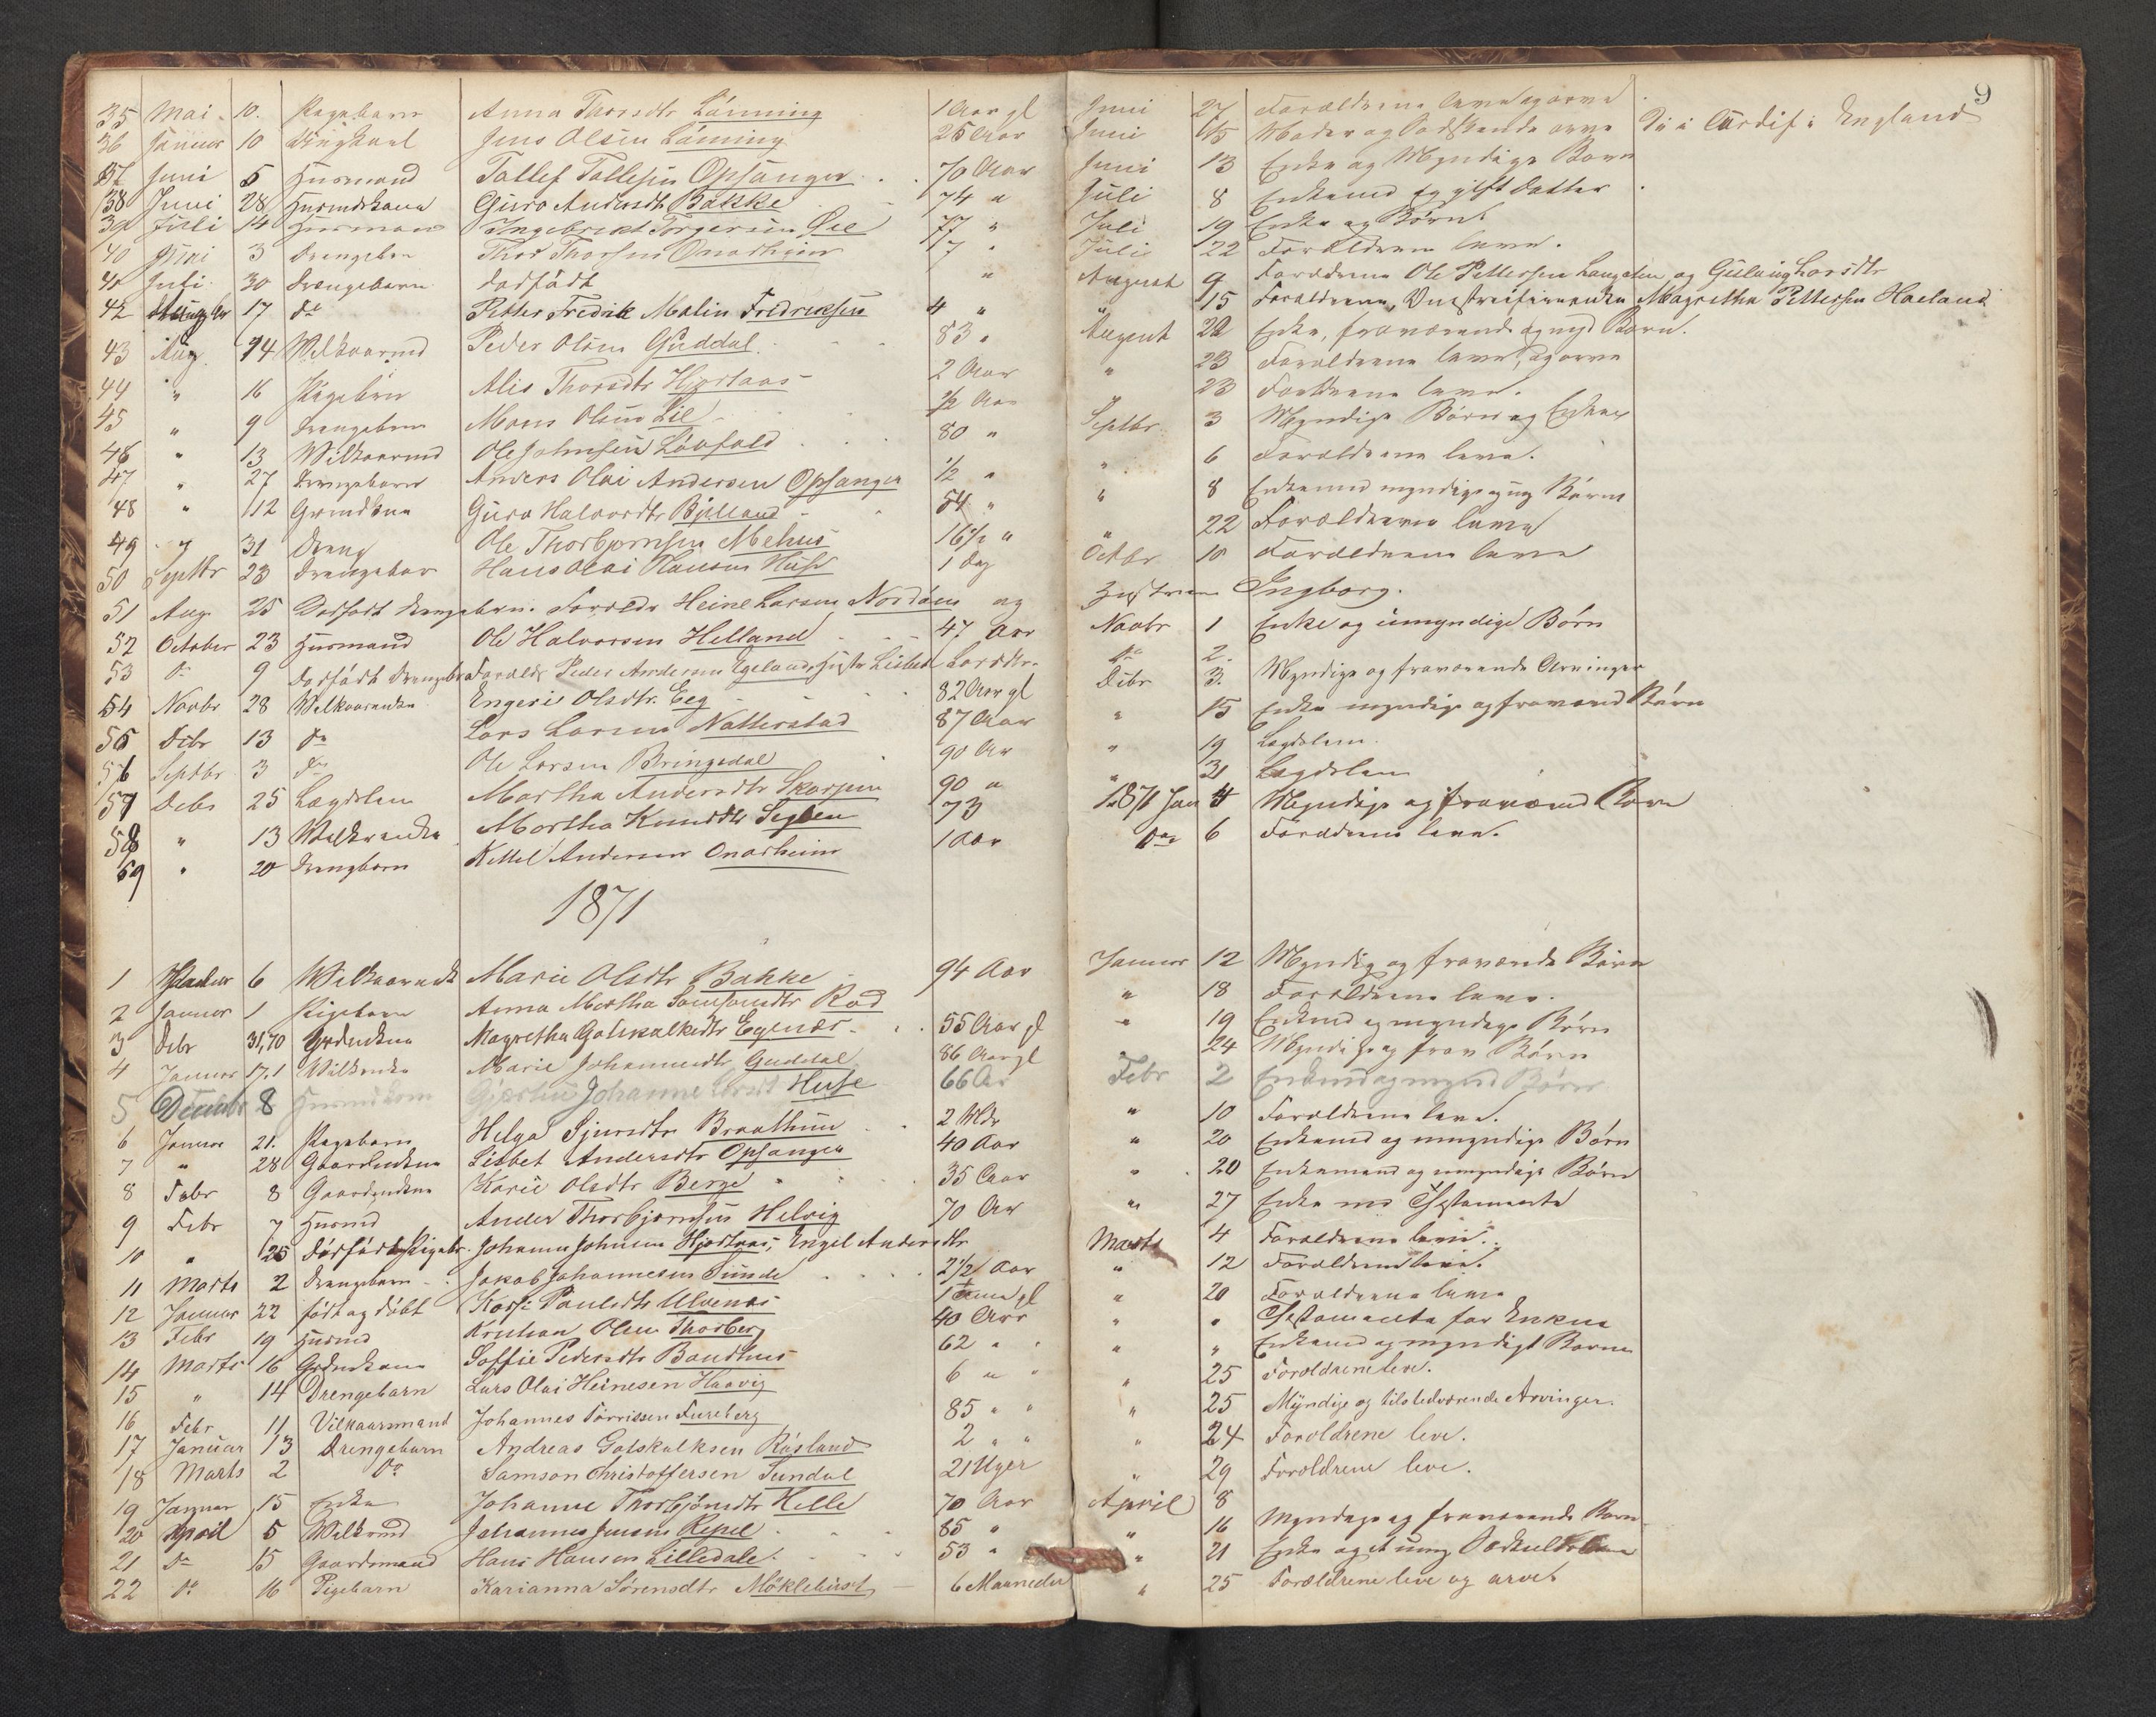 9
35 Mai 10. Pigebarn Anna Thorsdtr Lønning 1 Aar gl Juni 27 Forældrene leve og arve
36 Januar 10 Ungkarl Jens Olsen Lønning 25 Aar Juni Moder og Sødskende arve Dø i Cardif i England
37 Juni 5 Husmand Tollef Tollefsen Opsanger 70 Aar Juni 13 Enke og Myndige Børn
38 Juni 28 Husmdskone Guro Andersdtr Bakke 74 " Juli 8 Enkemd og gift Datter
39 Juli 14 Husmand Ingebrikt Torgersen Øie 77 " Juli 19 Enke og Børn
40 Juni 3 Drengebn Thor Thorsen Onarheim 7 " Juli 22 Forældrene leve.
41 Juli 30 Drengebarn dødfødt " August 9 Forældrene Ole Pettersen Langaten og Guloug Larsdtr
42 17 do Petter Fredrik Malin Fredriksen 4 " " 15 Forældrene, Omstreiferenke Magrethe Pettersen Haeland
43 Aug 14 Welkaarmd Peder Olsen Guddal 83 " August 22 Enke, fraværende og myd Børn.
44 " 16 Pigebrn Alis Thorsdtr Hjortaas 2 Aar " 23 Forældrene leve, og arve
45 " 9 Drengebrn Mons Olsen Lie ½ Aar " 23 Forældrene leve.
46 " 13 Wilkaarmd Ole Johnsen Løvfald 80 " Septbr 3 Myndige Børn og Enke
47 " 27 Drengebarn Anders Olai Andersen Opsanger ½ " " 6 Forældrene leve.
48 " 12 Grmdkne Guro Halvordtr Bjelland 54 " " 8 Enkemd myndige og umg Børn
49 " 31 Dreng Ole Thorbjørnsen Mehus 16½ " " 22 Forældrene leve
50 Septbr 23 Drengebar Hans Olai Hansen Huse 1 Dag Octbr 10 Forældrene leve
51 Aug 25 Dødfødt Drengebarn. Foreldr Heine Larsen Nordaus og Hustrue Ingborg.
52 October 23 Husmand Ole Halvorsen Helland 47 Aar Novbr 1 Enke og umyndige Børn
53 do 9 dødfødt Drengebr Foreldr Peder Andersen Egeland Hustr Lisbet Larsdtr. do 2.
54 Novbr 28 Welkaarenke Engeri Olsdtr. Eeg 82 Aar gl Debr 3. Myndige og fraværende Arvinger
55 Debr 13 do Lars Larsen Natterstad 87 Aar " 15 Enke myndige og fraværend Børn
56 Septbr 3 do Ole Larsen Bringedal 90 Aar " 19 Lægdslem.
57 Debr 25 Lægdslem Martha Andersdtr Skorpen 90 " " 31 Lægdslem
58 " 13 Welkarenke Martha Knudsdtr Seglen 73 1871 Jan 4 Myndige og fraværend Børn
59 " 20 Drengbarn Kittel Andersen Onarheim 1 Aar do 6 Forældrene leve.
1871
1 Januar 6 Wilkaarenk Marie Olsdtr Bakke 94 Aar Januar 12 Myndig og fraværende Børn
2 Januar 1 Pigebarn Anna Martha Samsonsdtr Rød " 18 Forældrene leve.
3 Debr 31,70 Grdmdkne Magretha Gotskalksdtr Egenæs 55 Aar gl " 19 Enkmd og myndige Børn
4 Januar 17,1 Wilkenke Marie Johannesdtr Guddal 86 Aar gl " 24 Myndige og frav Børn
5 Decembr 8 Husmdkone Gjertrud Johanne Larsdt Huse 66 Ar Febr 2 Enkemd og myndi Børn
6 Januar 21. Pigebarn Helga Sjursdtr Braathun 2 Mdr " 10 Forældrene leve.
7 " 28 Gaardmdkne Lisbet Andersdtr Opsanger 40 Aar " 20 Enkemd og umyndige Børn
8 Febr 8 Gaardmdkne Kari Olsdtr Berge 35 Aar " 20 Enkemand og umyndige Børn
9 Febr 7 Husmd Anders Thorbjørnsen Helvig 70 Aar " 27 Enke med Testamente
10 " 25 dødfødt Pigebr. Johannes Johnsen Hjortaas, Engel Andersdtr Marts 4 Forældrene leve.
11 Marts 2 Drengebarn Jakob Johannesen Sunde 2½ Aar " 12 Forældrene leve.
12 Januar 22 født og døbt Kari Paulsdtr Ulvenæs 1 Time gl " 20 Forældrene leve
13 Febr 19 Husmd Kristian Olsen Thorberg 40 Aar " " Testamente for Enken
14 Marts 16 Grdmdkone Soffie Pedersdtr Bondhus 62 " " " Enkemd og myndigt Børn
15 " 14 Drengebarn Lars Olai Heinesen Haavig 6 " " 25 Forældrene leve.
16 Febr 11 Vilkaarsmand Johannes Torrissen Fureberg 85 " " 25 Myndige og tilstedværende Arvinger.
17 Januar 13 Drengebarn Andreas Gotskalksen Røsland 2 " " 24 Forældrene leve.
18 Marts 2 Do Samson Christoffersen Sundal 21 Uger " 29 Forældrene leve.
19 Januar 15 Enke Johanne Thorbjønsdtr Helle 70 Aar April 8
20 April 5 Welkrmd Johannes Jensen Repel 85 " " 16 Myndige og fraværende Børn
21 do 15 Gaardsmand Hans Hansen Lilledale. 53 " " 21 Enke og et umg
22 do 16 Pigebarn Karianna Sørensdtr Møklebust 6 Maaneder " 25 Forældrene leve og arvet